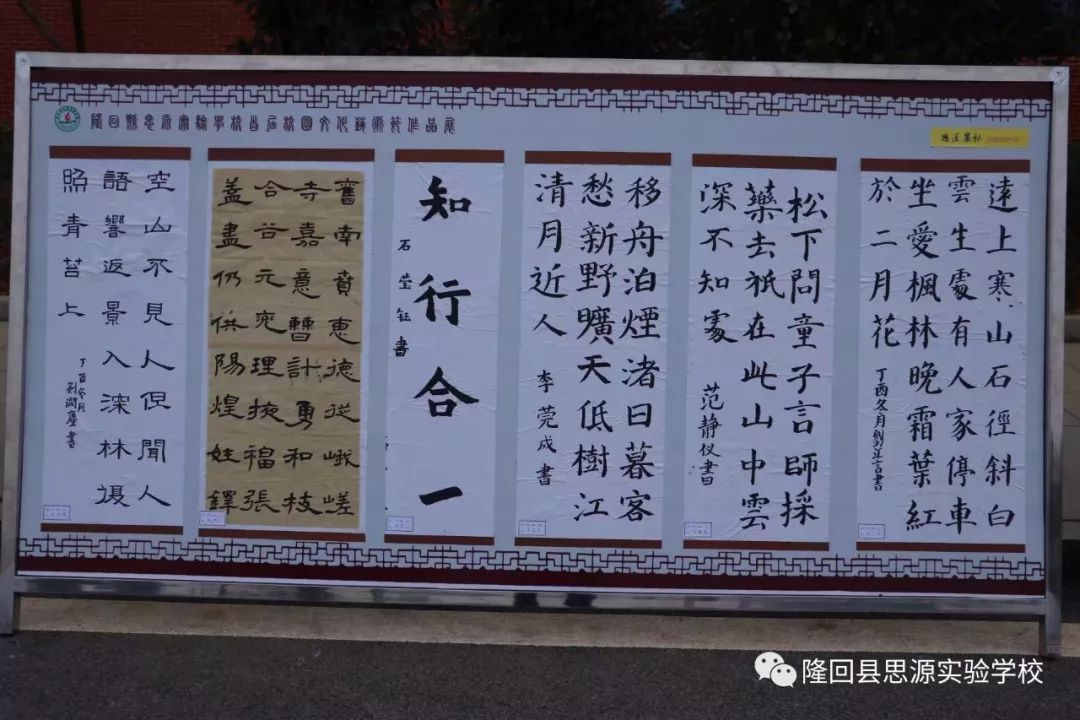 隆回縣思源實驗學校首屆校園文化藝術節作品展
遠上寒山石徑斜白
雲生處有人家停車
坐愛楓林晚霜葉紅
於二月花
丁酉冬月劉佳言書
松下問童子言師採
藥去祇在此山中雲
深不知處
范静仪書
移舟泊煙渚日暮客
愁新野曠天低樹江
清月近人
李莞成書
知行合一
石莹钰書
舊南賁惠德從峨嵯
寺嘉意曹計勇和枝
合谷元兜理掖福張
蓋盡仍供陽煌姓鐸
空山不見人但聞人
語響返景入深林復
照青苔上
丁酉冬月
書
隆回县思源实验学校